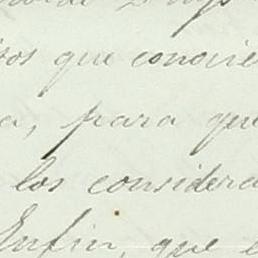 que concie
a, para que
los considera
Enfin, que e